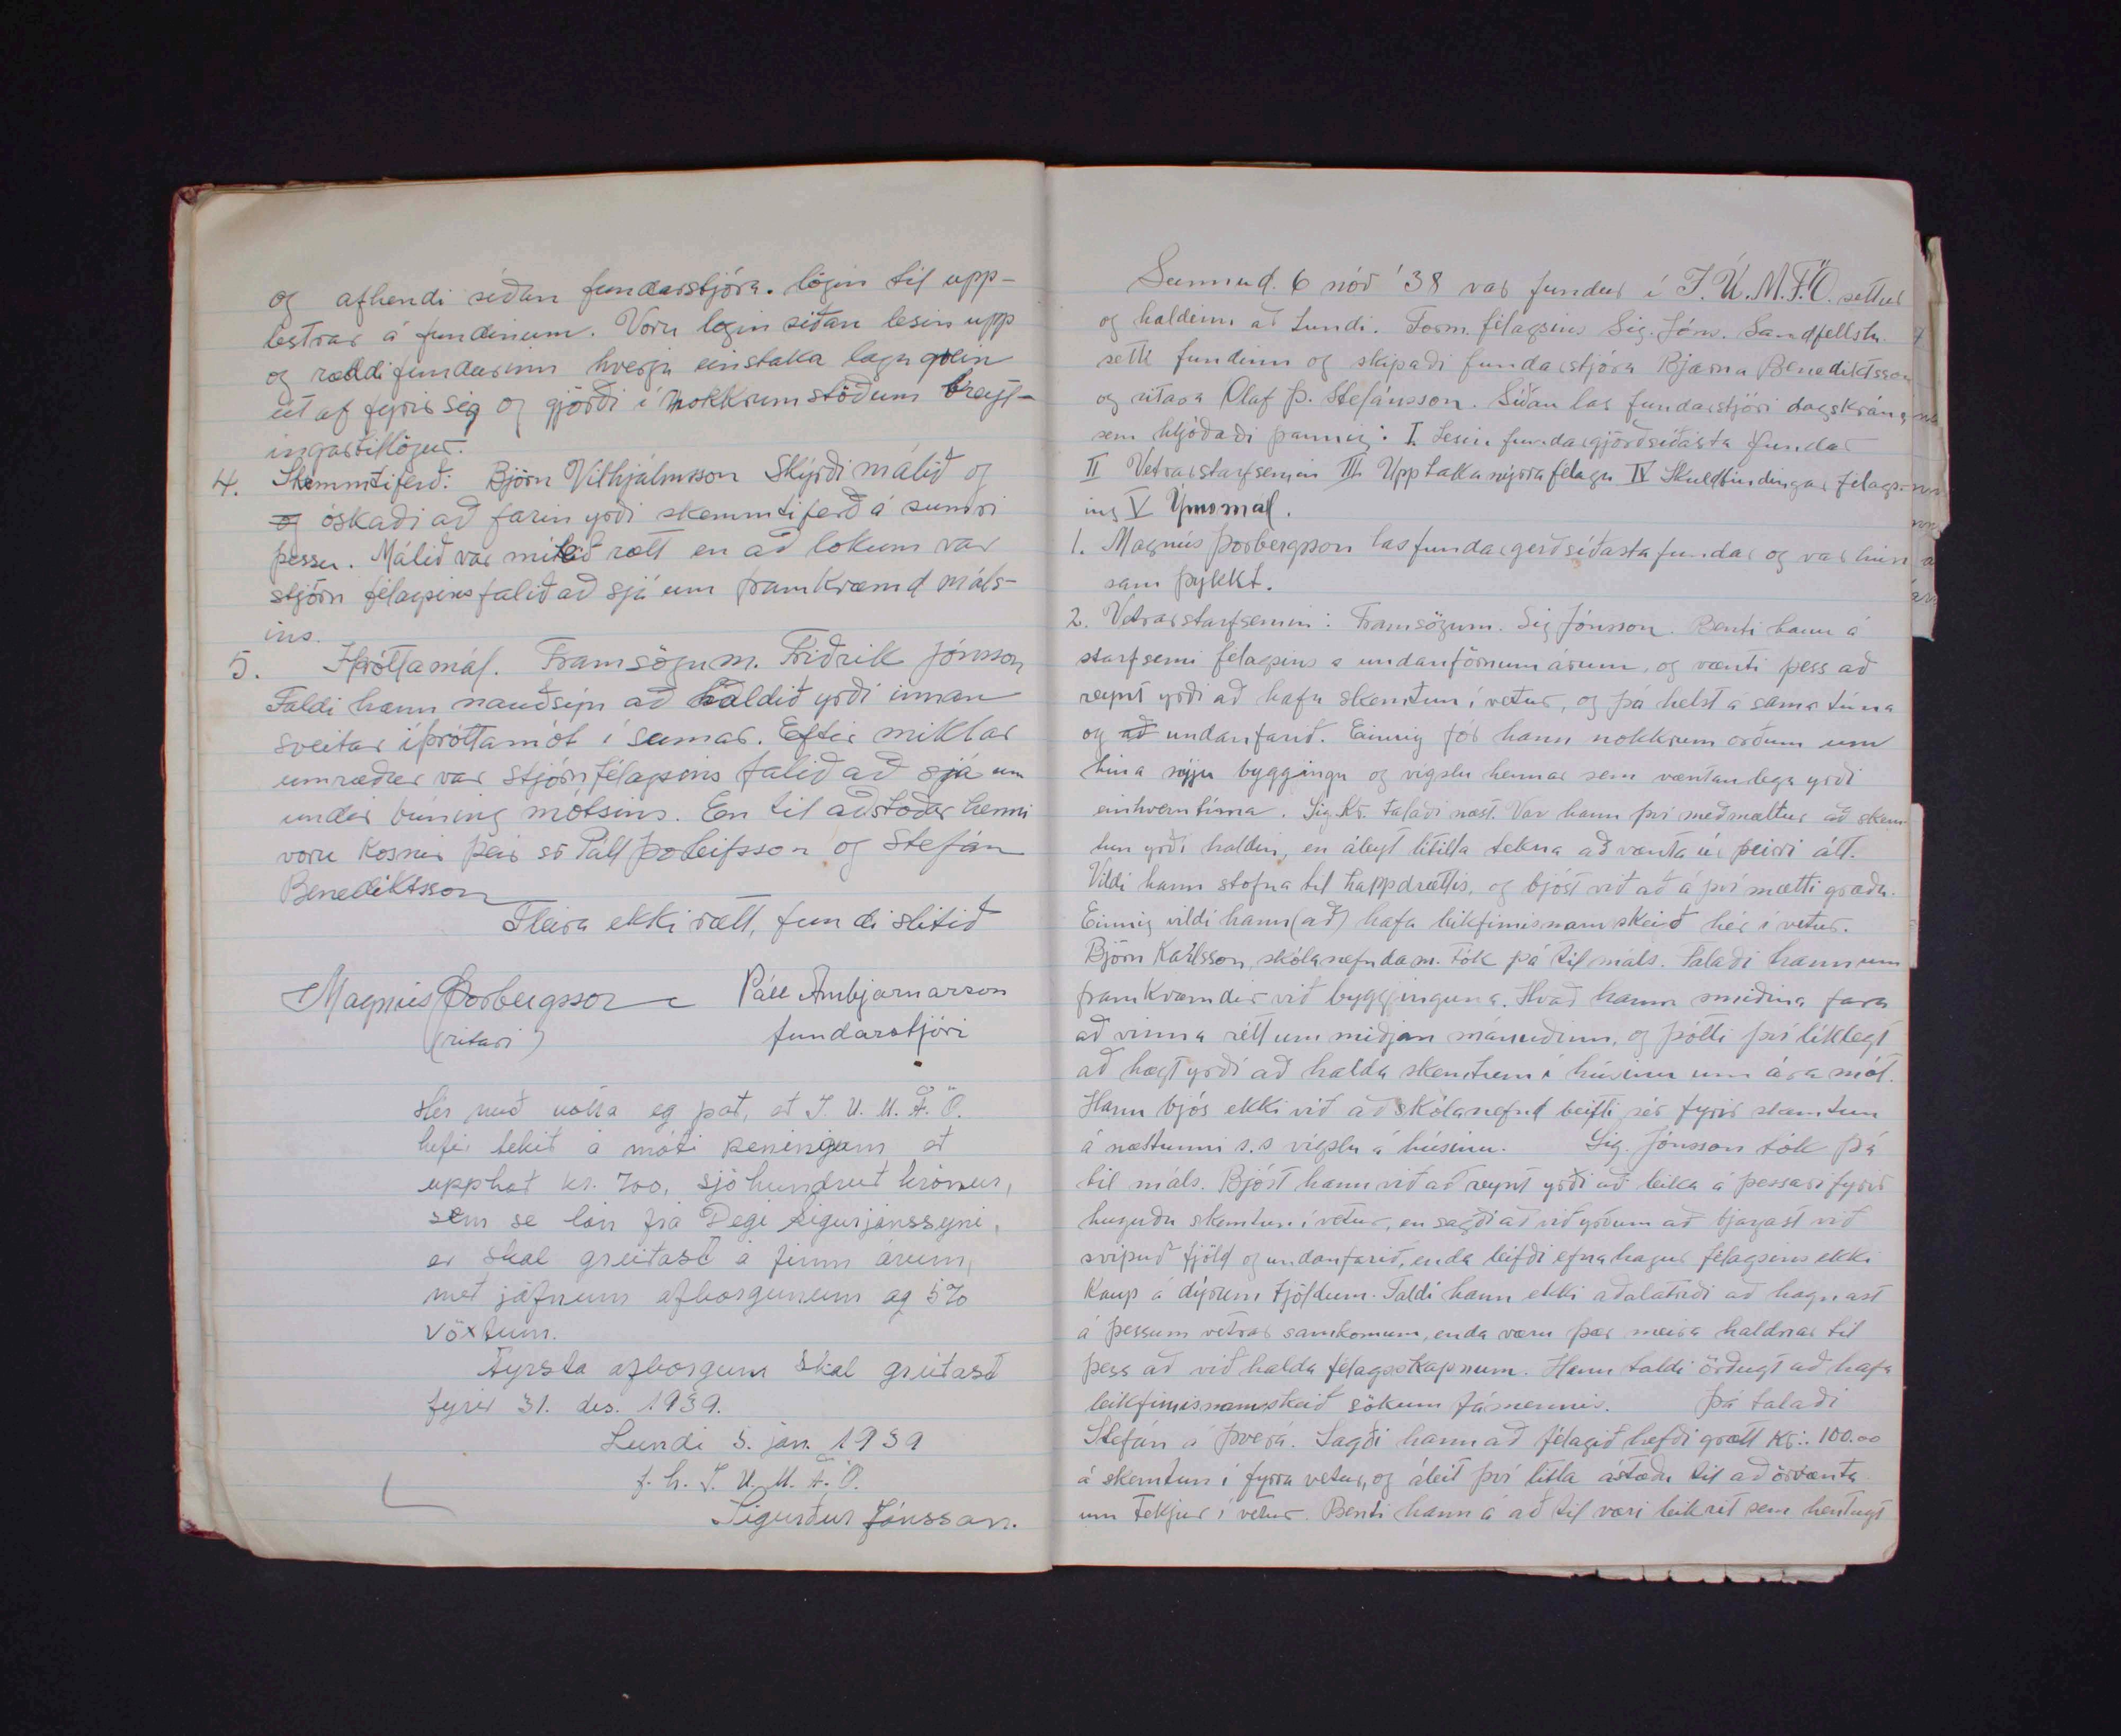 og afhendi síðan fundarstjóra. lögin til upp-
lestrar á fundinum. Voru login síðan lesin upp
og ræddi fundurinn hverja einstaka lagagrein
út af fyrir sig og gjörði í nokkrum stöðum breyt-
ingartillögur.
4. Skemmtiferð: Björn Vilhjálmsson Skýrði málið og
og óskaði að farin yrði skemmtiferð á sumri
þessu. Málið var mikið rætt en að lokum var
stjórn félagsins falið að sjá um framkvæmd máls-
ins.
5. Íþróttamál. Framsögum. Friðrik Jónsson
Taldi hann nauðsyn að haldið yrði innan
sveitar íþróttamót í sumar. Eftir miklar
umræður var stjórn félagsins falið að sjá um
undir búning mótsins. En til aðstoðar henni
voru kosnir þeir sr Páll Þorleifsson og Stefán
Benediktsson
Fleira ekki rætt, fundi slitið
Magnús Þorbergsson Páll Arnbjarnarson
(ritari) fundarstjóri
Hér með votta eg það, at Í. U. M. F. Ö.
hefir tekit á móti peningum at
upphat kr. 700, sjö hundrut krónur,
sem se lán frá Degi Sigurjónssyni,
er skal greitast á fimm árum,
met jöfnum afborgunum og 5%
vöxtum.
Fyrsta afborgum skal greitast
fyrir 31. des. 1939.
Lundi 5. jan. 1939
f. h. Í. U. M. F. Ö.
Sigurður Jónsson.
Sunnud. 6 nóv '38 var fundur í Í. U. M. F. Ö. settur
og haldinn að Lundi. Form. félagsins Sig. Jóns. Sandfellsh.
setti fundinn og skipaði fundarstjóra Bjarna Benediktsson
og ritara Olaf Þ. Stefánsson. Síðan las fundarstjóri dagskrána
sem hljóðaði þannig: I. Lesin fundargjörð síðasta fundar
II Vetrarstarfsemin III. Upptaka nýrra félaga IV Skuldbindingar félags-
ins V Ýmsmál.
1. Magnús Þorbergsson las fundargerð síðasta fundar og var hún
samþykkt.
2. Vetrarstarfsemin: Framsögum. Sig Jónsson. Benti hann á
starfsemi félagsins á undanförnum árum, og vænti þess að
reynt yrði að hafa skemtun í vetur, og þá helst á sama tíma
og að undanfarið. Einnig fór hann nokkrum orðum um
hina nýju byggingu og vígslu hennar sem væntanlega yrði
einhverntíma. Sig. Kr. talaði næst. Var hann því meðmæltur að skem-
tun yrði haldin, en áleyt lítilla tekna að vænta úr þeirri átt.
Vildi hann stofna til happdrættis, og bjóst við að á því mætti græða.
Einnig vildi hann (að) hafa leikfimisnamskeið hér í vetur.
Björn Karlsson, skólanefndam. Tók þá til máls. Talaði hann um
framkvæmdir við bygginguna. Kvað hann smiðina fara
að vinna rétt um miðjan mánuðinn, og þótti því líklegt
að hægt yrði að halda skemtun í húsinu um áramót.
Hann bjós ekki við að skólanefnd beitti sér fyrir skemtun
á næstunni s.s vígslu á húsinu. Sig. Jónsson tók þá
til máls. Bjóst hann við að reynt yrði að leika á þessari fyrir
huguðu skemtun í vetur, en sagði að við yrðum að bjargast við
svipuð tjöld og undanfarið, enda leifði efnahagur félagsins ekki
kaup á dýrum tjöldum. Taldi hann ekki aðalatriði að hagnast
á þessum vetrar samkomum, enda væru þær meira haldnar til
þess að við halda félagsskapnum. Hann taldi örðugt að hafa
leikfimisnamskeið sökum fámennis. Þá talaði
Stefán á Þverá. Sagði hann að félagið hefði grætt kr: 100.00
á skemtun í fyrra vetur, og áleit því litla ástæðu til að örvænta
um tekjur í vetur. Benti hann á að til væri leikrit sem hentugt